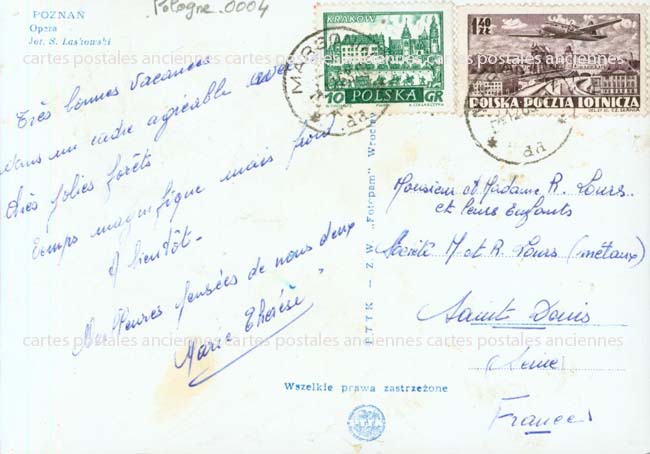 Pologne.0004
POZNAŃ
Opera
fot. S. Laskowski
KRAKÓW
10 POLSKA GR
1.40 ZŁ
POLSKA POCZTA LOTNICZA
cartes postales anciennes cartes postales anciennes cartes postales anciennes
Très bonnes vacances
dans un cadre agréable avec
très jolies forêts
Temps magnifique mais froid
A bientôt.
Meilleures pensées de nous deux
Marie Thérèse
P.T.T.K. – Z.W. „Fotopam" Wrocław
Monsieur et Madame R. Lours
et leurs Enfants
Société M et R. Lours (métaux)
Saint Denis
Seine
France
cartes postales anciennes cartes postales anciennes cartes postales anciennes
Wszelkie prawa zastrzeżone